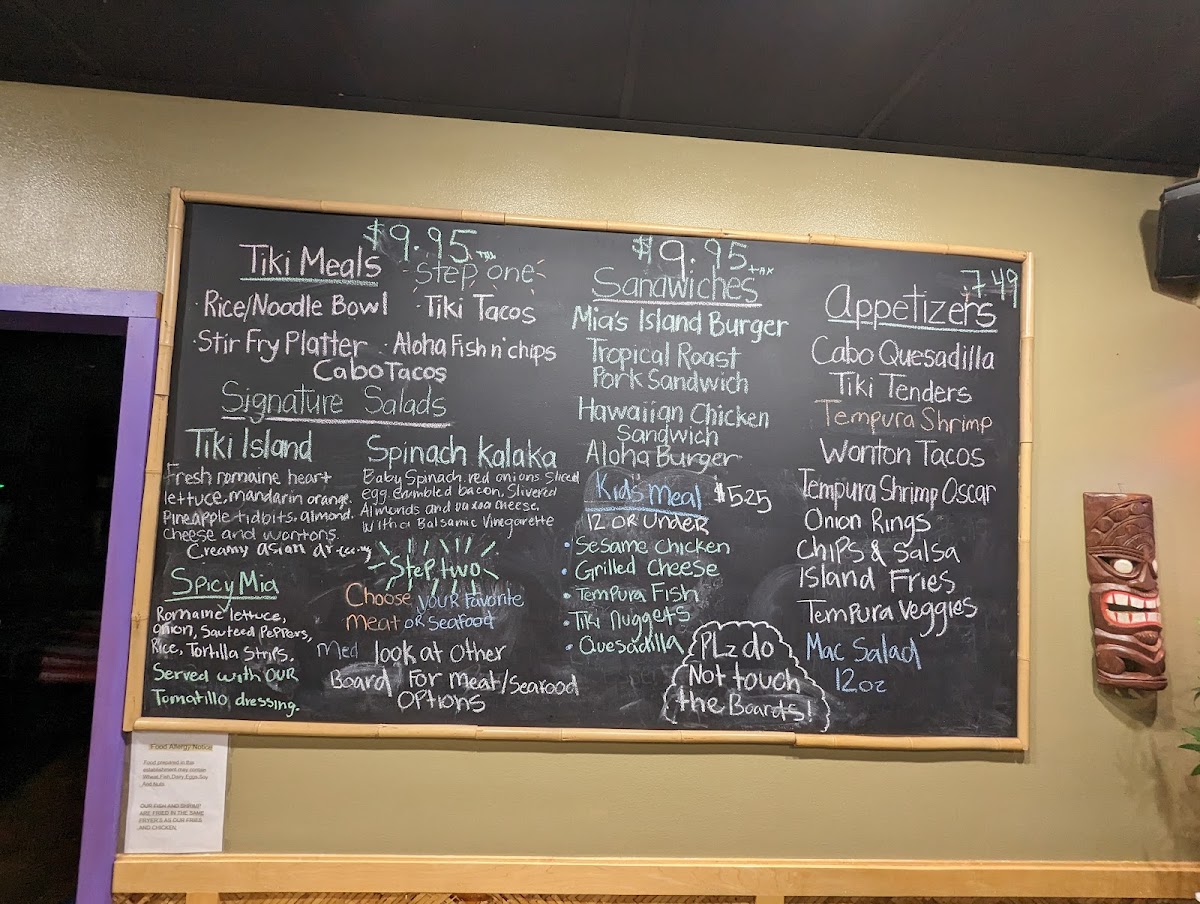 $9.95 tax
Tiki Meals
Step one
· Rice/Noodle Bowl
· Tiki Tacos
· Stir Fry Platter
· Aloha Fish n' chips
Cabo Tacos
Signature Salads
Tiki Island
Fresh romaine heart
lettuce, mandarin orange,
Pineapple tidbits, almond,
cheese and wontons.
Creamy asian
Spicy Mia
Romaine lettuce,
onion, Sauteed Peppers,
Rice, Tortilla Strips.
Served with OUR
Tomatillo dressing.
Spinach Kalaka
Baby Spinach, red onions, Sliced
egg, crumbled bacon, Slivered
Almonds and cheese,
With a Balsamic Vinegarette
Step two
Choose your Favorite
meat or seafood
look at other
Board For meat/seafood
Options
$9.95 +tax
Sandwiches
Mia's Island Burger
Tropical Roast
Pork Sandwich
Hawaiian Chicken
Sandwich
Aloha Burger
Kid's Meal $5.25
12 or under
· Sesame Chicken
· Grilled Cheese
· Tempura Fish
· Tiki Nuggets
· Quesadilla
PLz do
Not touch
the Boards!
7.49
Appetizers
Cabo Quesadilla
Tiki Tenders
Tempura Shrimp
Wonton Tacos
Tempura Shrimp Oscar
Onion Rings
Chips & Salsa
Island Fries
Tempura Veggies
Mac Salad
12oz
Food Allergy Notice
Food prepared in this
establishment may contain
Wheat, Fish, Dairy, Eggs, Soy
And Nuts
OUR FISH AND SHRIMP
ARE FRIED IN THE SAME
FRYERS AS OUR FRIES
AND CHICKEN.